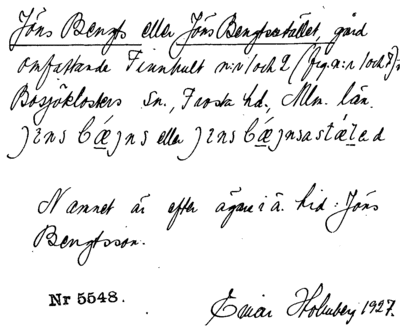 Jöns Bengts eller Jöns Bengtsastället, gård
omfattande Finnhult n:r 1 och 2 (fig. n:r 1 och 7) i
Bosjöklosters Sn., Frosta hd., Mlm. län.
jens bæjns eller jens bæjnsastæled
Namnet är efter ägare i ä. tid: Jöns
Bengtsson.
Nr 5548.
Einar Holmberg 1927.